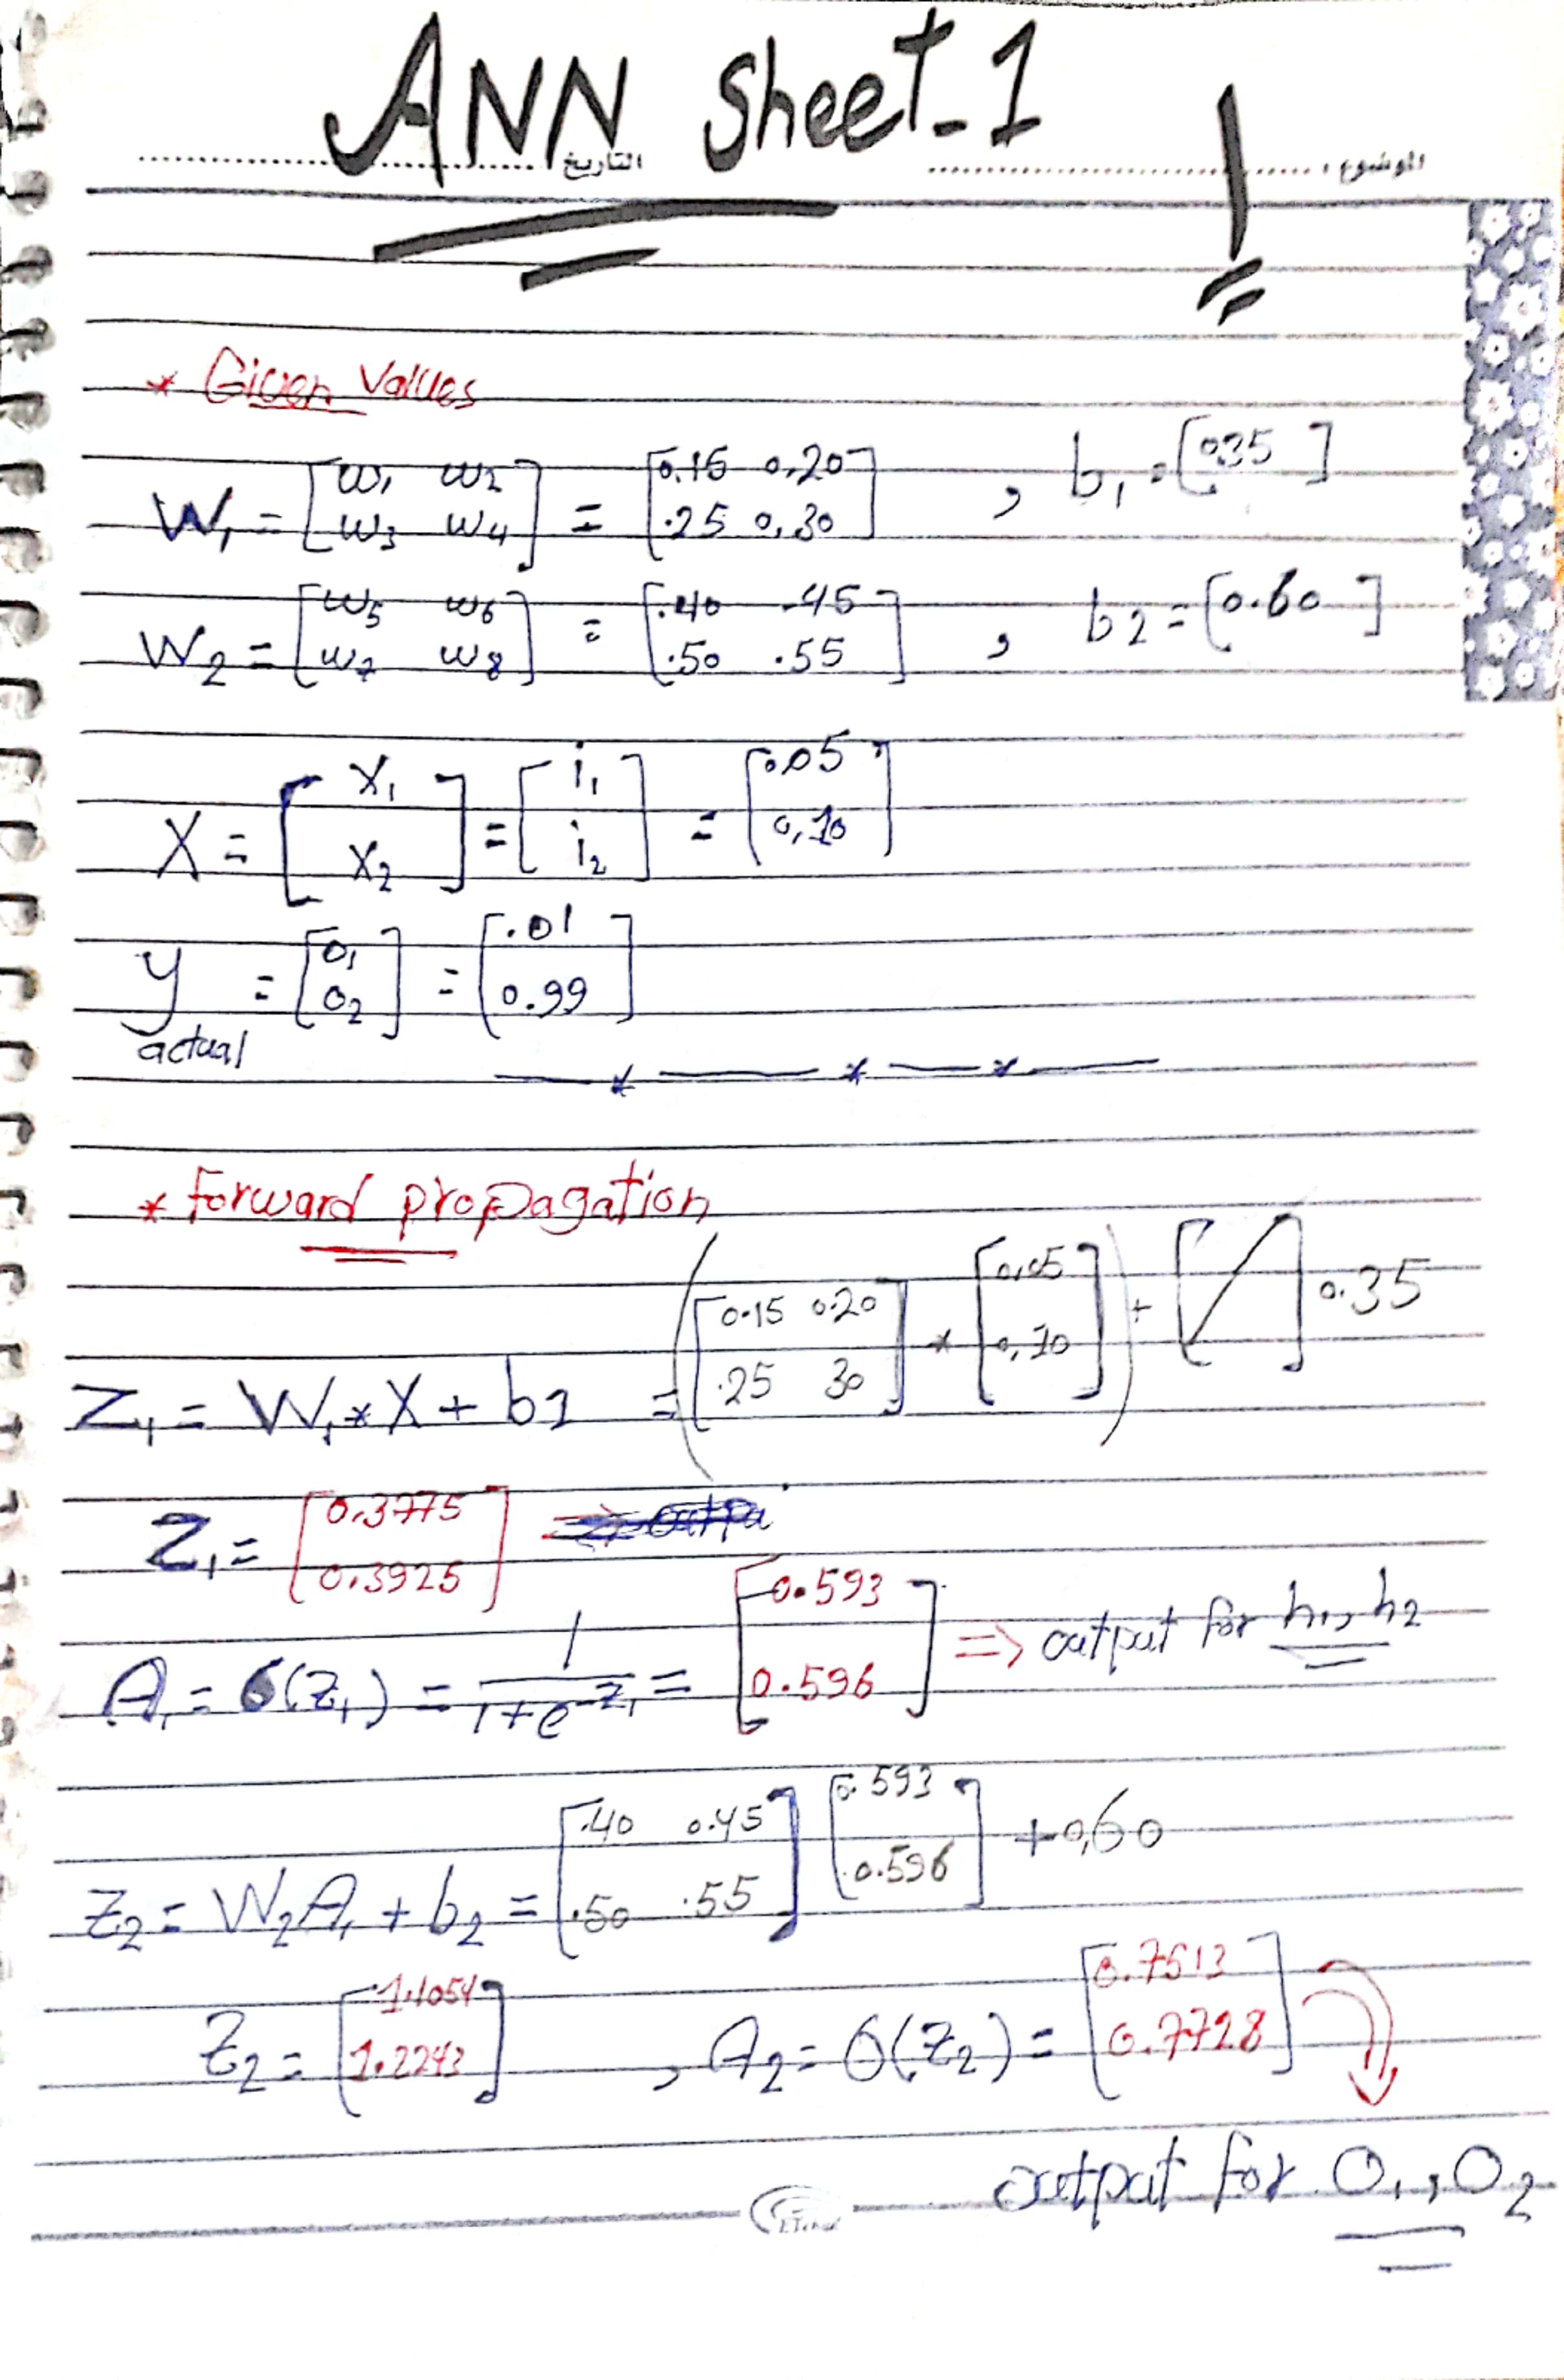 ANN Sheet-1
التاريخ الموضوع :
1
* Given Values
W₁ = [w₁ w₂; w₃ w₄] = [0.15 0.20; .25 0.30] , b₁ = [0.35]
W₂ = [w₅ w₆; w₇ w₈] = [.40 .45; .50 .55] , b₂ = [0.60]
X = [x₁; x₂] = [i₁; i₂] = [0.05; 0.10]
y actual = [o₁; o₂] = [.01; 0.99]
* Forward propagation
Z₁ = W₁ * X + b1 = ([0.15 0.20; .25 30] * [0.05; 0.10]) + [ ] 0.35
Z₁ = [0.3775; 0.3925]
A₁ = σ(Z₁) = 1/(1+e^-z₁) = [0.593; 0.596] => output for h₁, h₂
Z₂ = W₂A₁ + b₂ = [.40 0.45; .50 .55] [0.593; 0.596] + 0,60
Z₂ = [1.1054; 1.2243] , A₂ = σ(Z₂) = [0.7513; 0.7728]
output for O₁, O₂